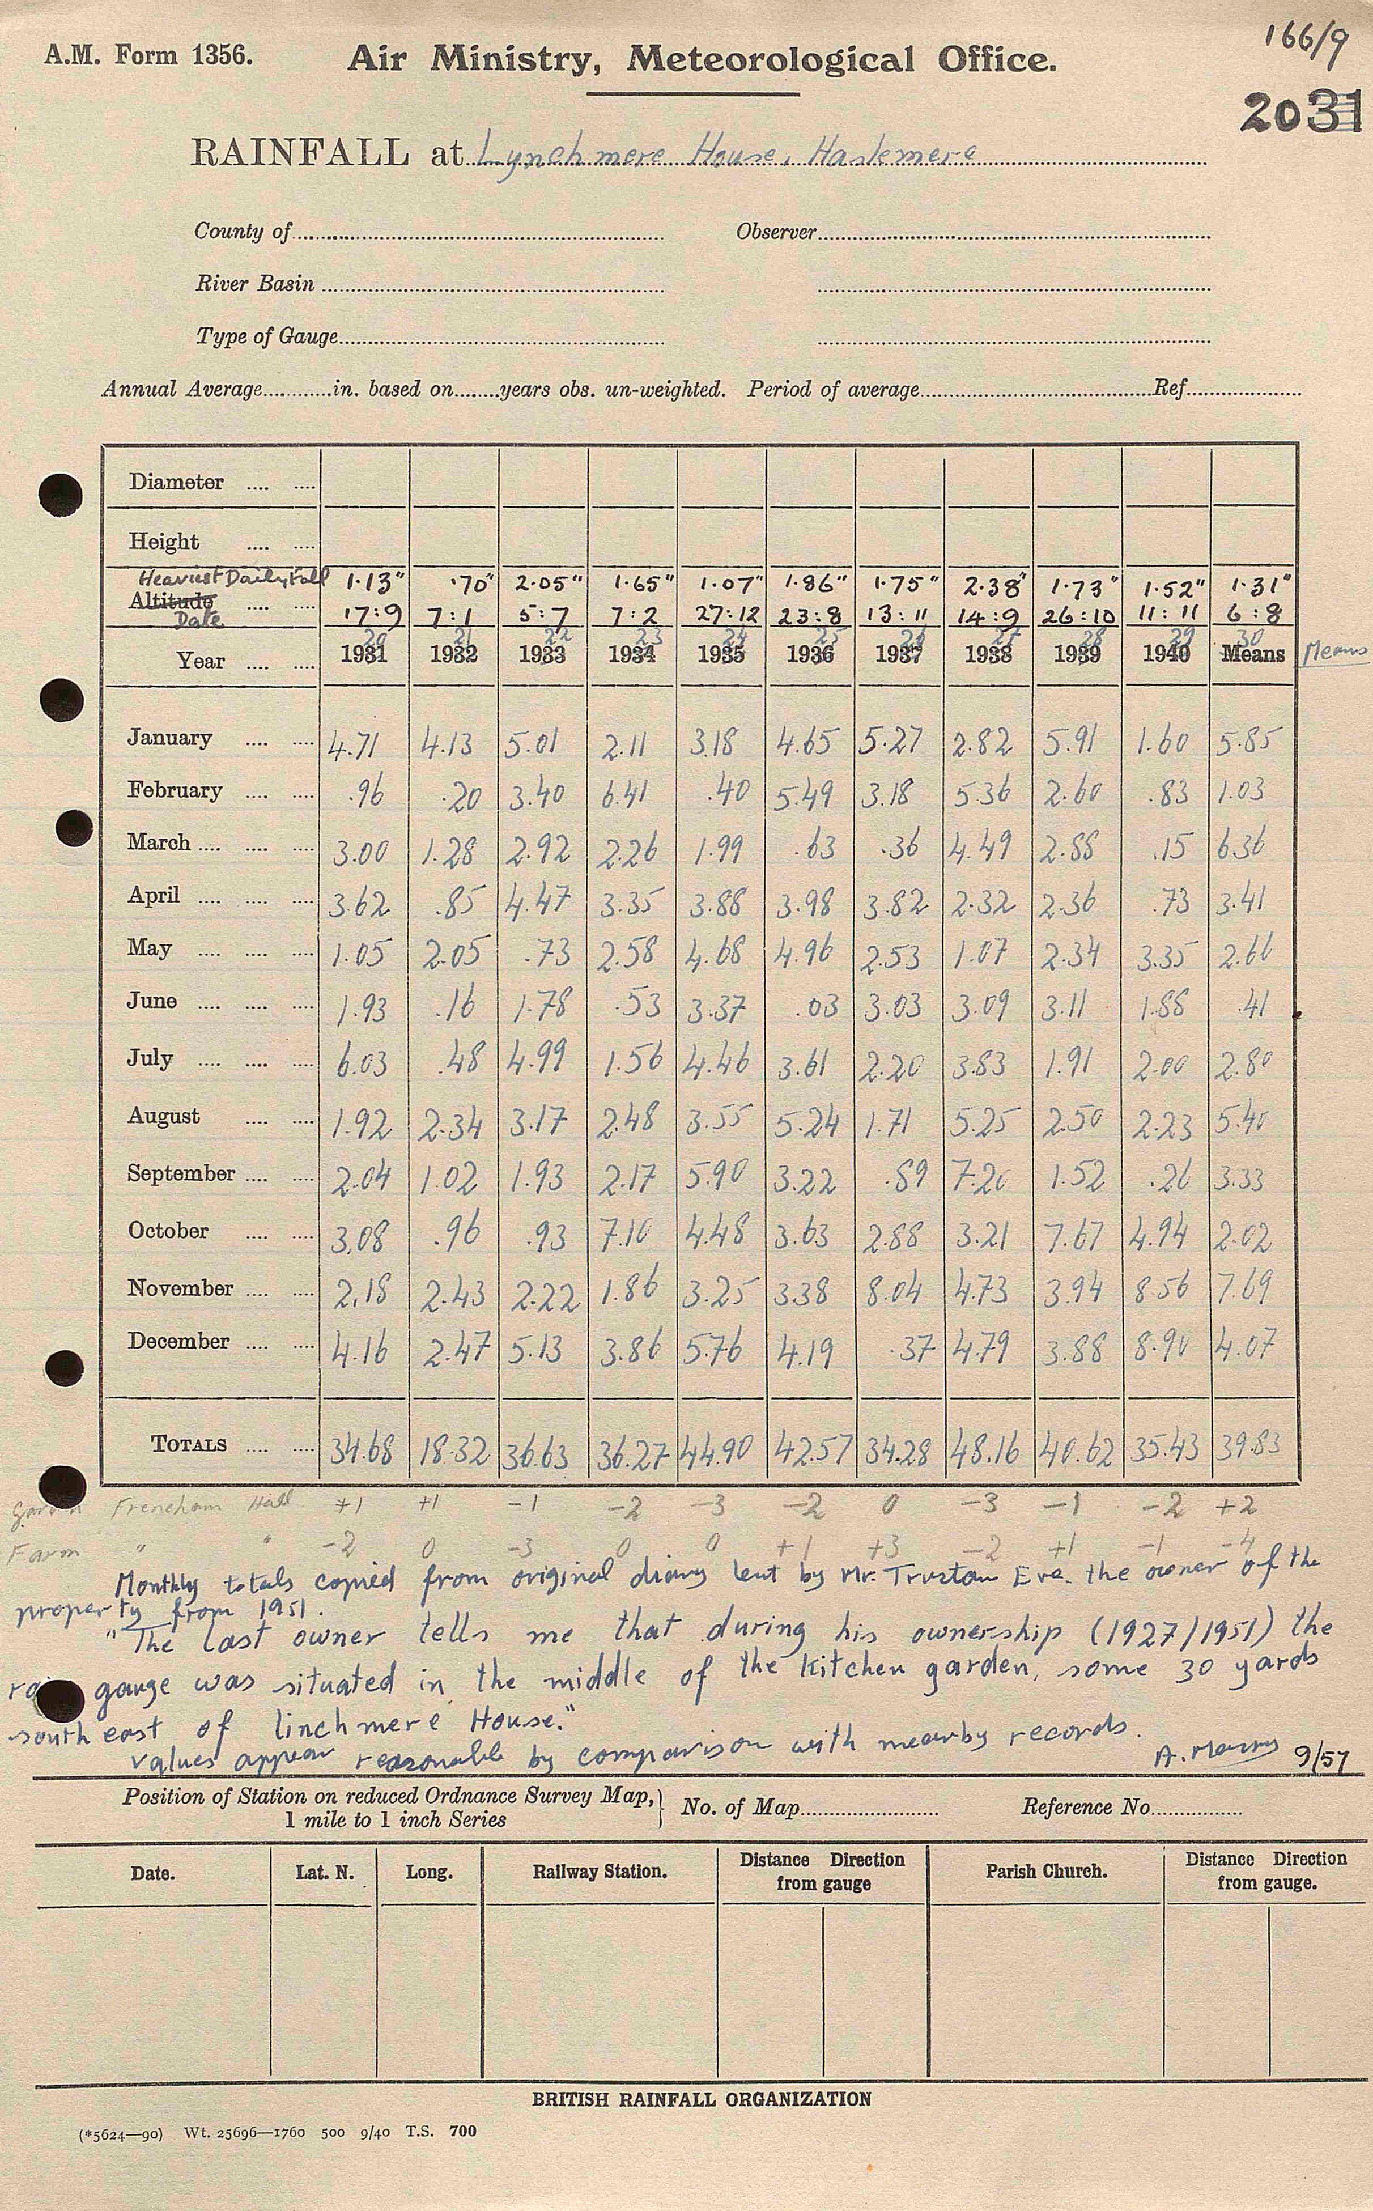 166/9
A.M. Form 1356. Air Ministry, Meteorological Office.
2031
RAINFALL at Lynchmere House, Haslemere
County of Observer
River Basin
Type of Gauge
Annual Average in. based on years obs. un-weighted. Period of average Ref
Diameter
Height
Heaviest Daily Fall 1.13" .70" 2.05" 1.65" 1.07" 1.86" 1.75" 2.38" 1.73" 1.52" 1.31"
Altitude
Date 17:9 7:1 5:7 7:2 27:12 23:8 13:11 14:9 26:10 11:11 6:8
20 21 22 23 24 25 26 27 28 29 30
Year 1931 1932 1933 1934 1935 1936 1937 1938 1939 1940 Means Means
January 4.71 4.13 5.01 2.11 3.18 4.65 5.27 2.82 5.91 1.60 5.85
February .96 .20 3.40 6.41 .40 5.49 3.18 5.36 2.60 .83 1.03
March 3.00 1.28 2.92 2.26 1.99 .63 .36 4.49 2.88 .15 6.36
April 3.62 .85 4.47 3.35 3.88 3.98 3.82 2.32 2.36 .73 3.41
May 1.05 2.05 .73 2.58 4.68 4.96 2.53 1.07 2.34 3.35 2.66
June 1.93 .16 1.78 .53 3.37 .03 3.03 3.09 3.11 1.88 .41
July 6.03 .48 4.99 1.56 4.46 3.61 2.20 3.83 1.91 2.00 2.80
August 1.92 2.34 3.17 2.48 3.55 5.24 1.71 5.25 2.50 2.23 5.40
September 2.04 1.02 1.93 2.17 5.90 3.22 .89 7.20 1.52 .26 3.33
October 3.08 .96 .93 7.10 4.48 3.63 2.88 3.21 7.67 4.94 2.02
November 2.18 2.43 2.22 1.86 3.25 3.38 8.04 4.73 3.94 8.56 7.69
December 4.16 2.47 5.13 3.86 5.76 4.19 .37 4.79 3.88 8.90 4.07
TOTALS 34.68 18.32 36.63 36.27 44.90 42.57 34.28 48.16 40.62 35.43 39.83
Garden Frencham Hall +1 +1 -1 -2 -3 -2 0 -3 -1 -2 +2
Farm " " -2 0 -3 0 0 +1 +3 -2 +1 -1 -4
Monthly totals copied from original diary lent by Mr. Trustam Eve. the owner of the
property from 1951.
"The last owner tells me that during his ownership (1927/1951) the
rain gauge was situated in the middle of the kitchen garden, some 30 yards
south east of linchmere House."
values appear reasonable by comparison with nearby records.
A. 9/57
Position of Station on reduced Ordnance Survey Map, } No. of Map Reference No.
1 mile to 1 inch Series
Date. Lat. N. Long. Railway Station. Distance Direction from gauge Parish Church. Distance Direction from gauge.
BRITISH RAINFALL ORGANIZATION
(*5624—90) Wt. 25696—1760 500 9/40 T.S. 700